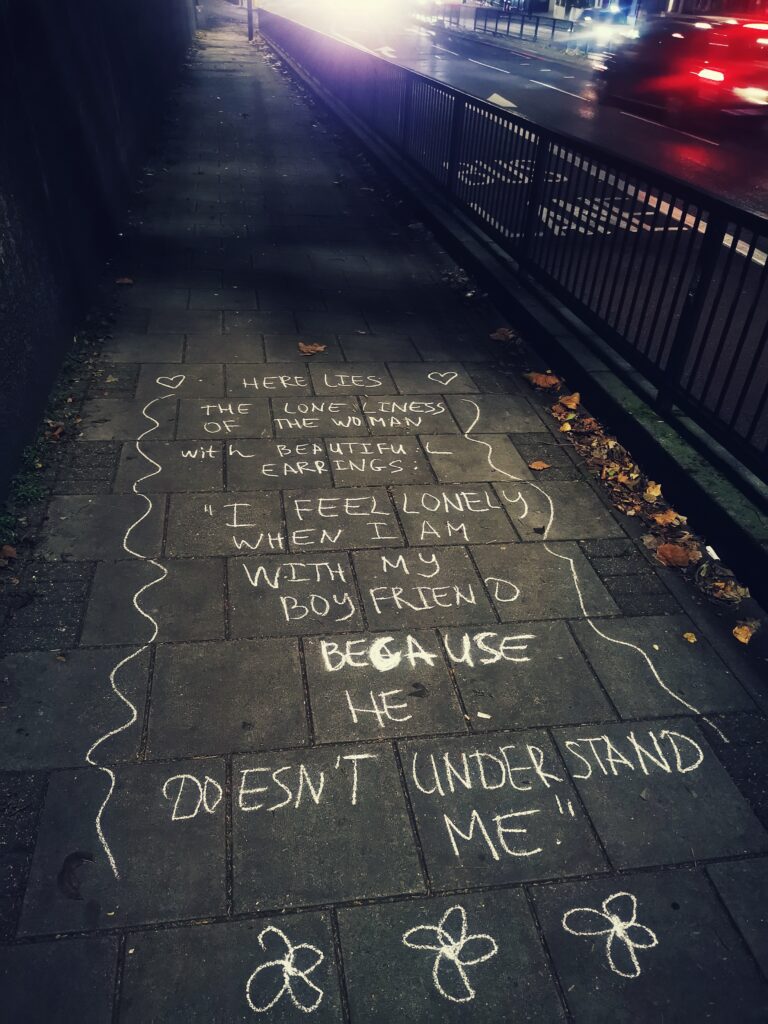 HERE LIES
THE LONELINESS
OF THE WOMAN
with BEAUTIFUL
EARRINGS:
"I FEEL LONELY
WHEN I AM
WITH MY
BOYFRIEND
BECAUSE
HE
DOESN'T UNDERSTAND
ME"